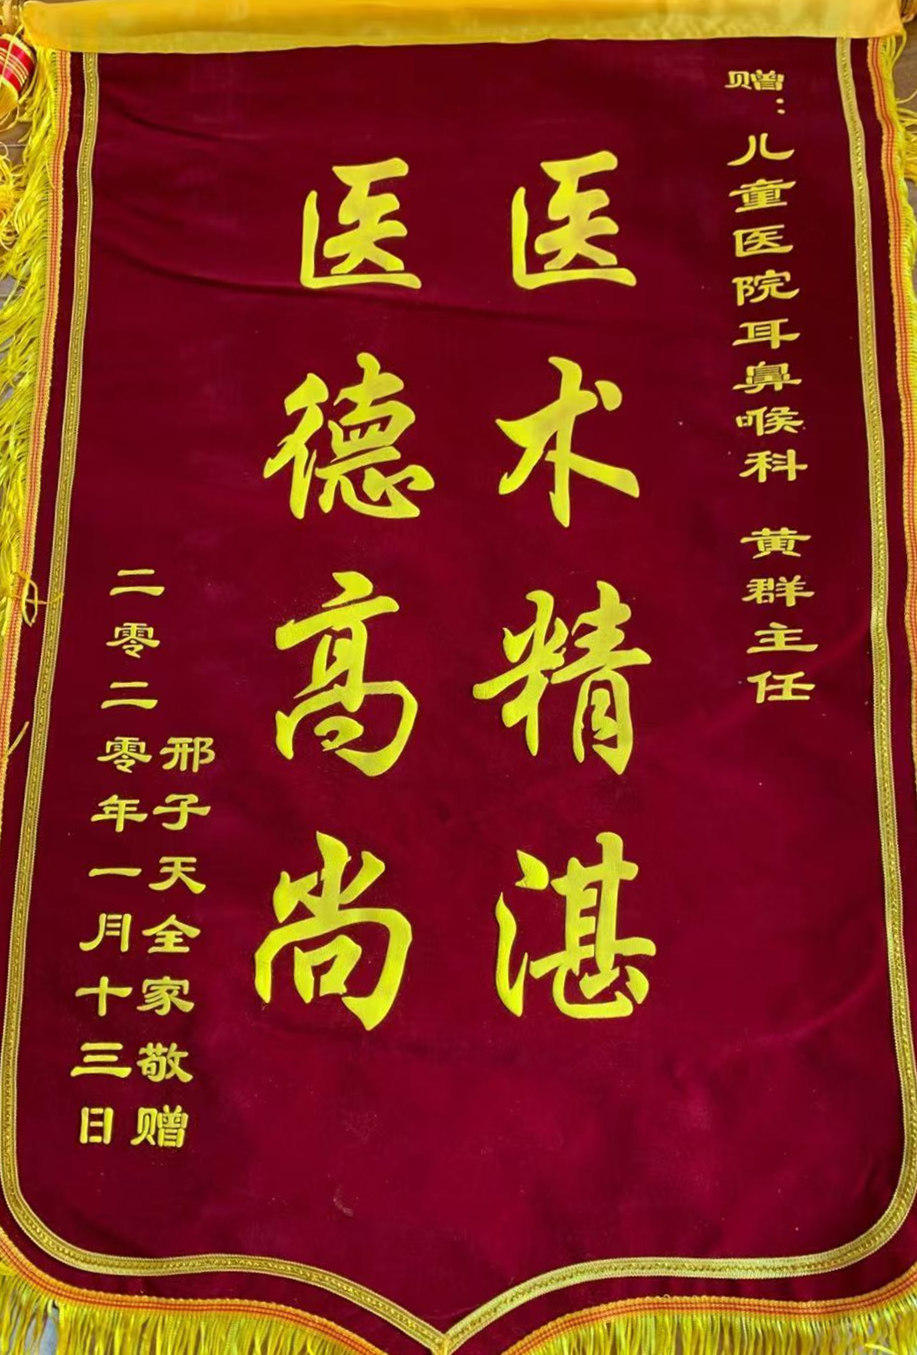 赠：儿童医院耳鼻喉科 黄群主任
医术精湛
医德高尚
邢子天全家敬赠
二零二零年一月十三日